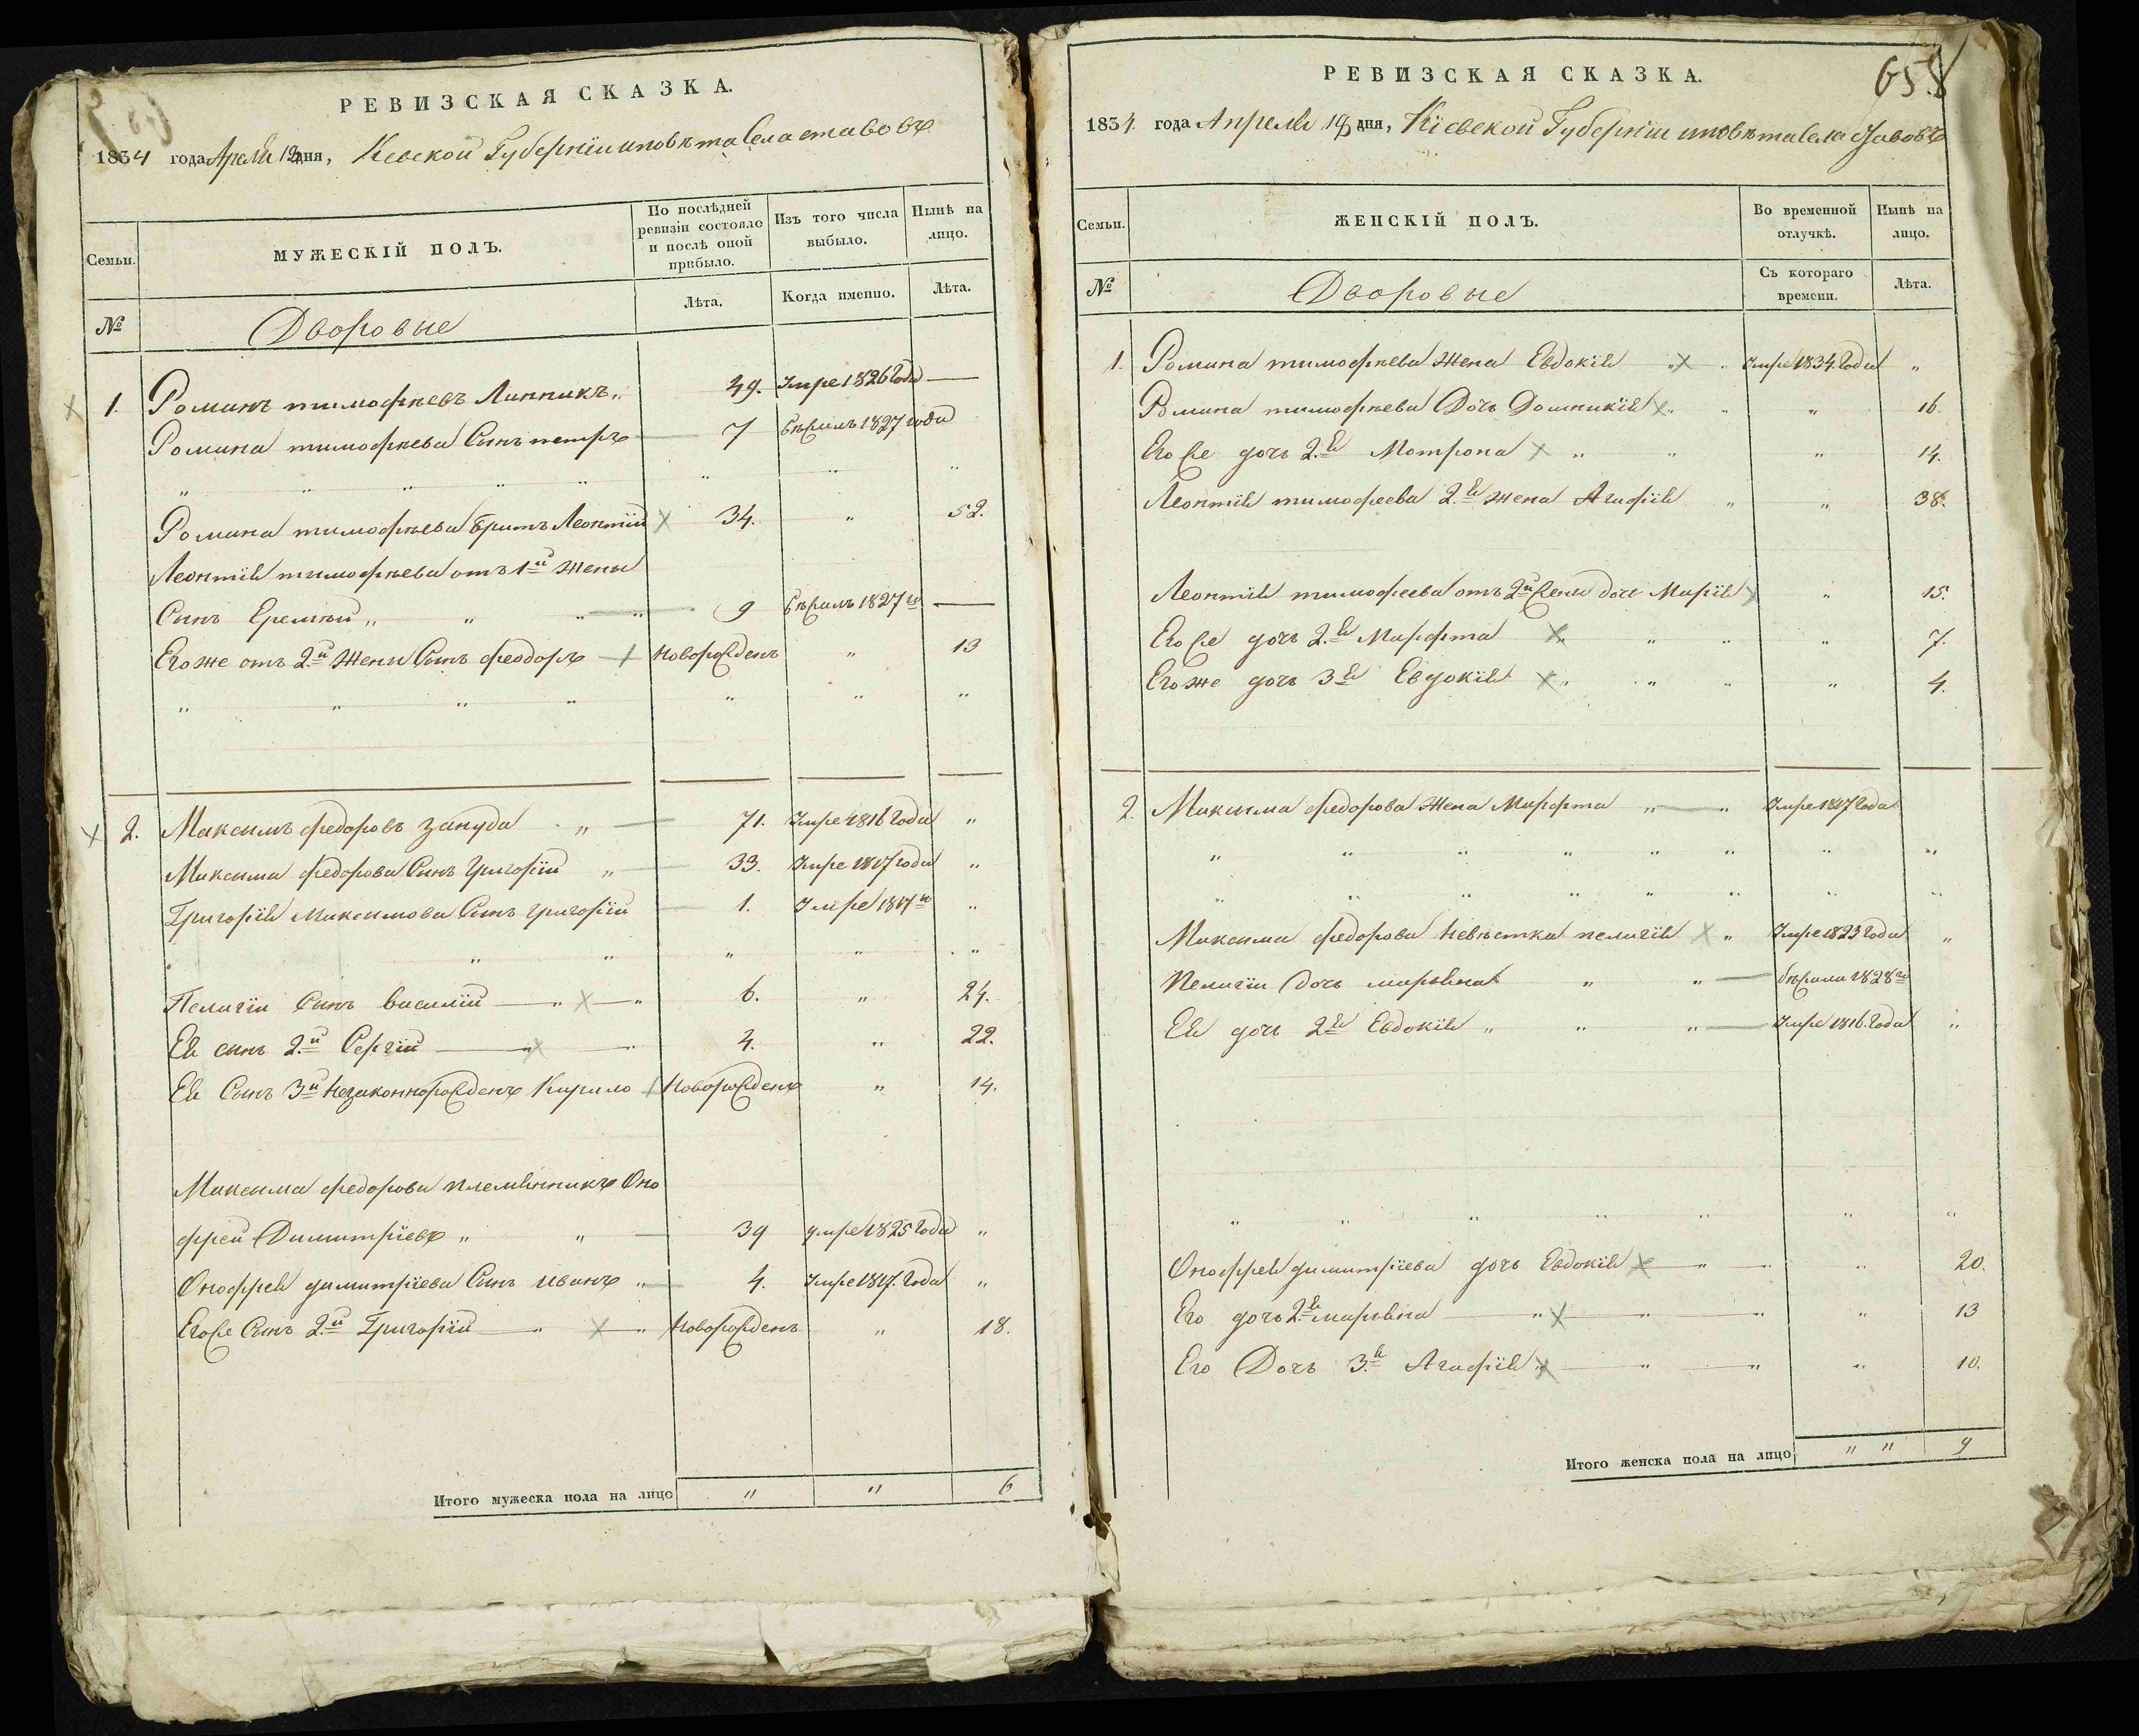 РЕВИЗСКАЯ СКАЗКА.
1834 года Апреля 18 дня, Кіевской Губерніи и повѣта Села ставовъ
Семьи.
МУЖЕСКІЙ ПОЛЪ.
По послѣдней ревизіи состояло и послѣ оной прибыло.
Изъ того числа выбыло.
Нынѣ на лицо.
№
Дворовые
Лѣта.
Когда именно.
Лѣта.
1. Романъ тимофѣевъ Линникъ „ 49. Умре 1826 Года —
Романа тимофѣева Сынъ петръ — 7 бѣжалъ 1827 года
Романа тимофѣева братъ Леонтій 34. „ 52.
Леонтія тимофѣева отъ 1й жены
Сынъ Еремѣй „ „ 9 бѣжалъ 1827 го —
Его же отъ 2.й жены Сынъ феодоръ — Новорожденъ „ 13
2. Максимъ федоровъ зануда „ — 71. Умре 1816 Года „
Максима федорова Сынъ Григорій „ — 33. Умре 1817 года „
Григорія Максимова Сынъ григорій — 1. Умре 1817 го „
Пелагіи Сынъ василій — „ — „ 6. „ 24.
Ея сынъ 2.й Сергій — 4. „ 22.
Ея Сынъ 3й Незаконнорожденъ Кирило Новорожденъ „ 14.
Максима федорова племянникъ Оно
фрей Димитріевъ „ „ — 39 умре 1825 Года „
Онофрея димитріева Сынъ иванъ „ — 4. Умре 1817. Года „
Егоже Сынъ 2.й Григорій — „ — „ Новорожденъ „ 18.
Итого мужеска пола на лицо „ „ 6
658
РЕВИЗСКАЯ СКАЗКА.
1834. года Апреля 18 дня, Кіевской Губерніи и повѣта Села Ставовъ
Семьи.
ЖЕНСКІЙ ПОЛЪ.
Во временной отлучкѣ.
Нынѣ на лицо.
№
Дворовые
Съ котораго времени.
Лѣта.
1. Романа тимофѣева жена Евдокія „ Умре 1834. Года „
Романа тимофѣева Дочь Домникія „ „ 16.
Егоже дочь 2.я Мотрона „ „ „ 14.
Леонтія тимофеева 2.я жена Агафія „ „ 38.
Леонтія тимофеева отъ 2й жены дочь Марія „ 15.
Егоже дочь 2.я Марфта „ „ „ 7.
Егоже дочь 3я Евдокія „ „ „ „ 4.
2. Максима федорова жена Марфта „ — „ Умре 1817 Года
Максима федорова Невѣстка пелагія „ Умре 1823 Года „
Пелагіи Дочь марьяна „ „ — бѣжала 1828 го
Ея дочь 2я Евдокія „ „ „ — Умре 1816. Года „
Онофрея димитріева дочь Евдокія — „ — „ „ 20.
Его дочь 2.я марьяна — „ — „ — „ „ 13
Его Дочь 3.я Агафія „ — „ — „ „ 10.
Итого женска пола на лицо „ „ 9